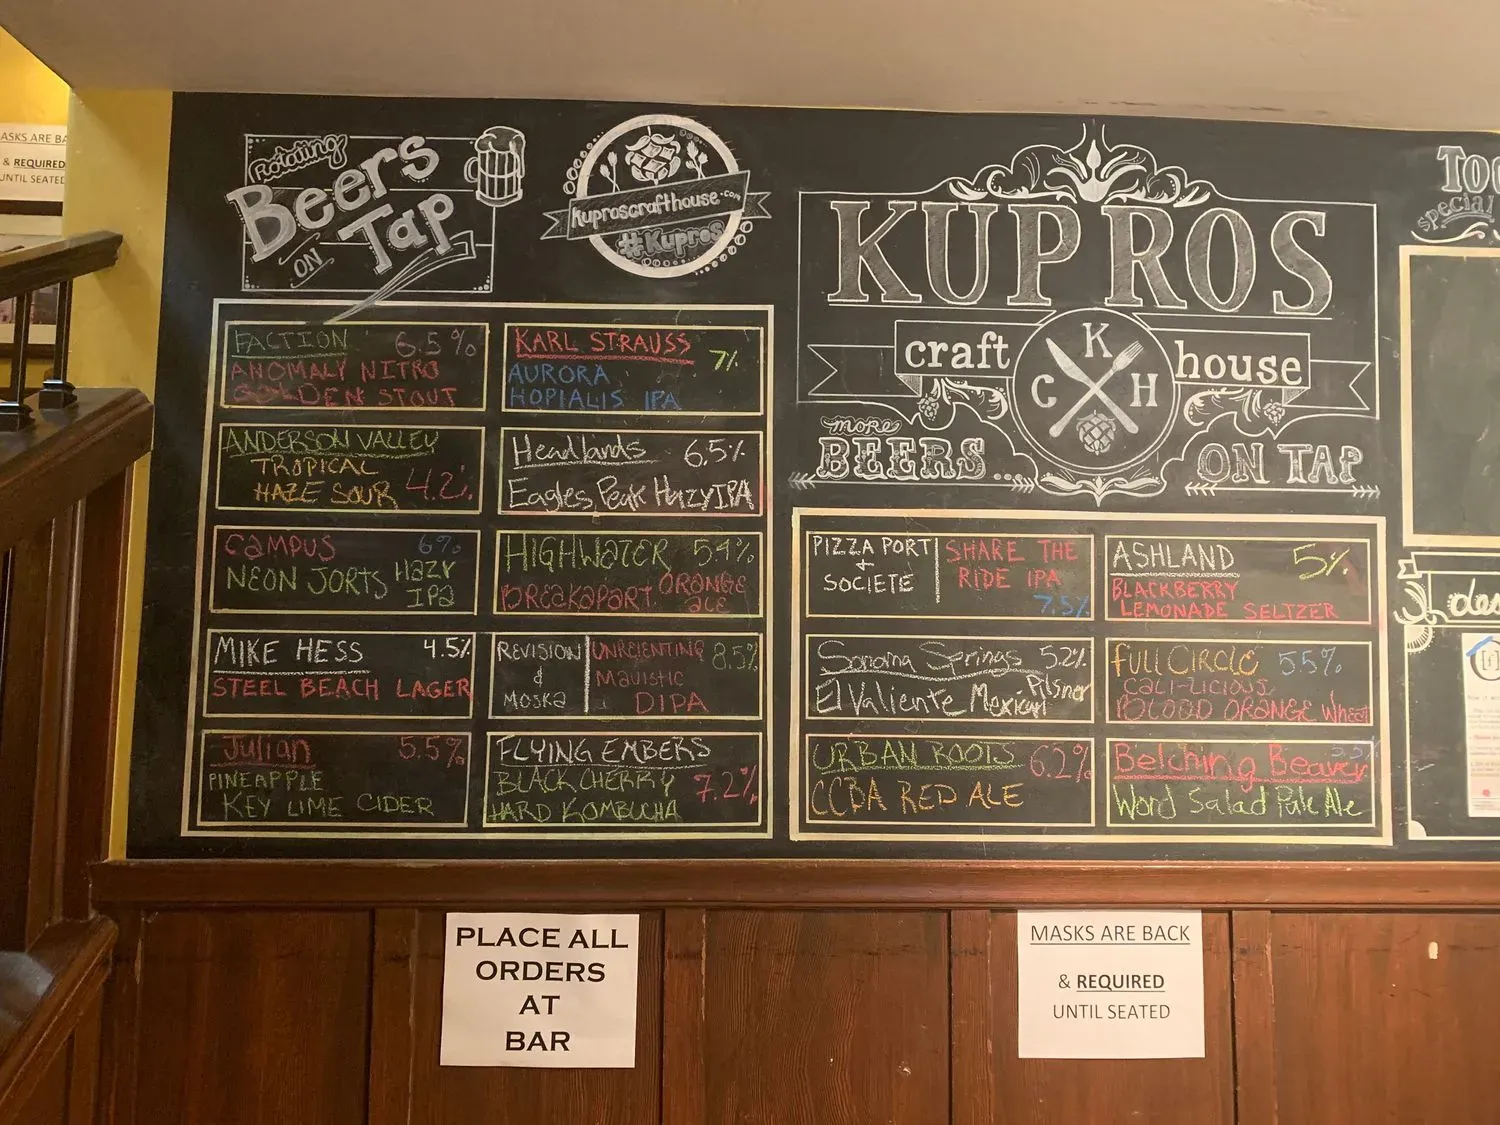 MASKS ARE BA
& REQUIRED
UNTIL SEATED
Rotating
Beers
ON Tap
kuproscrafthouse.com
#Kupros
FACTION 6.5%
ANOMALY NITRO
GOLDEN STOUT
KARL STRAUSS 7%
AURORA
HOPIALIS IPA
ANDERSON VALLEY
TROPICAL
HAZE SOUR 4.2%
Headlands 6.5%
Eagles Peak Hazy IPA
CAMPUS 6%
NEON JORTS HAZY
IPA
HIGHWATER 5.4%
BREAKAPART ORANGE
ALE
MIKE HESS 4.5%
STEEL BEACH LAGER
REVISION
&
MOSKA
8.5%
DIPA
Julian 5.5%
PINEAPPLE
KEY LIME CIDER
FLYING EMBERS
BLACK CHERRY 7.2%
HARD KOMBUCHA
KUPROS
craft house
K
C H
more
BEERS... ON TAP
PIZZA PORT
+
SOCIETE
SHARE THE
RIDE IPA
7.5%
ASHLAND 5%
BLACKBERRY
LEMONADE SELTZER
Sonoma Springs 5.2%
El Valiente Mexican Pilsner
FULL CIRCLE 5.5%
CALI-LICIOUS
BLOOD ORANGE Wheat
URBAN ROOTS 6.2%
CCBA RED ALE
Belching Beaver
Word Salad Pale Ale
special
des
PLACE ALL
ORDERS
AT
BAR
MASKS ARE BACK
& REQUIRED
UNTIL SEATED